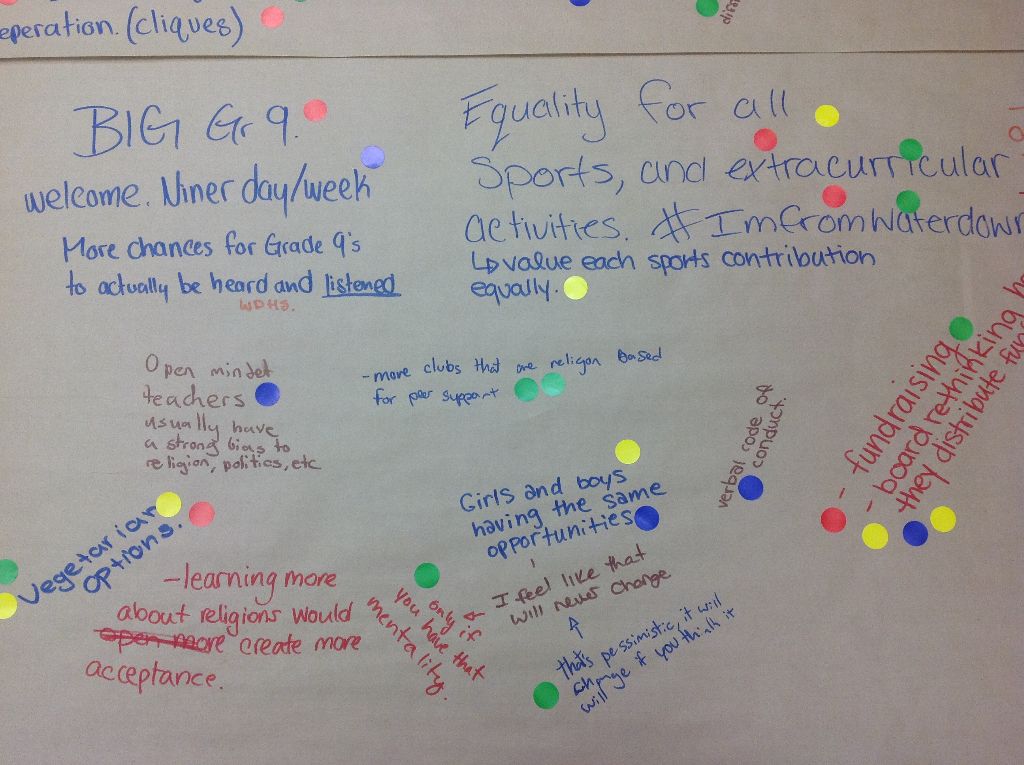 eperation. (cliques)
BIG Gr 9.
welcome. Niner day/week
More chances for Grade 9's
to actually be heard and listened
WDHS.
Equality for all
Sports, and extracurricular
activities. #ImFromWaterdown
↳ value each sports contribution
equally.
Open mindet
teachers
usually have
a strong bias to
religion, politics, etc
- more clubs that are religon based
for peer support
verbal code of
conduct.
- fundraising
- board rethinking
they distribute
Vegetarian
options.
Girls and boys
having the same
opportunities
I feel like that
will never change
← only if
you have that
mentality.
that's pessimistic, it will
change if you think it
will
- learning more
about religions would
open more create more
acceptance.